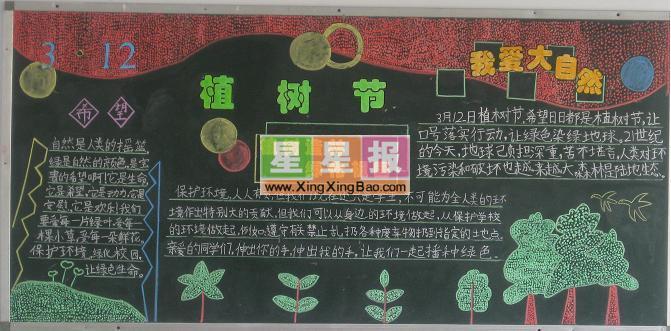 3 12
植树节
我爱大自然
希望
自然是人类的摇篮
绿是自然的颜色,是宝
贵的希望啊!它是生命,
它是希望,它是动力,它更
安慰,它是欢乐!我们
要爱每一片绿叶,爱每一
棵小草,爱每一朵鲜花,
保护环境,绿化校园,
让绿色生命。
3月12日植树节,希望日日都是植树节,让
口号落实行动,让绿色染绿地球。21世纪
的今天,地球已负担深重,苦不堪言,人类对环
境污染和破坏也越来越大,森林
星星报
www.XingXingBao.com
保护环境,人人有
不可能为全人类的生环
境作出特别大的贡献,但我们可以从身边的环境做起,从保护学校
的环境做起,例如:遵守有关禁止乱扔各种废弃物扔到指定的地点。
亲爱的同学们,伸出你的手,伸出我的手,让我们一起播种绿色。